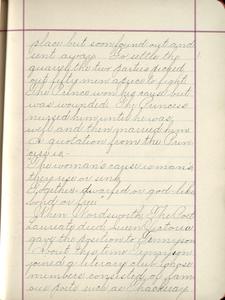 place but soon found out and
sent away. To settle the
quarrel the two parties picked
out fifty men apiece to fight.
The Prince won his cause but
was wounded. The Princess
nursed him until he was
well and then married him.
A quotation from the Prin-
cess is—
The woman's cause is man's
they rise or sink
Together dwarfed or god-like
bond or free
When Wordsworth The Poet
Laureate died Queen Victoria
gave the position to Tennyson
About this time Tennyson
joined a literary club whose
members consisted of fam-
ous poets such as Thackeray